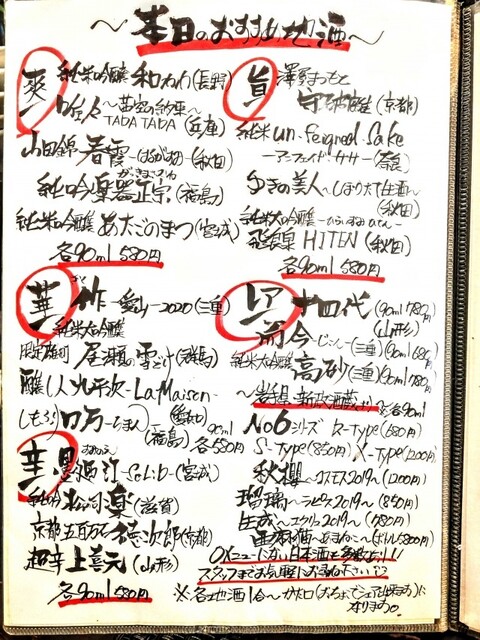 〜本日のおすすめ地酒〜
爽
純米吟醸 和和和(長野)
TADA TADA (兵庫)
山田錦 春霞 〜はるがすみ〜(秋田)
がっきまさむね
純吟 楽器正宗(福島)
純米吟醸 あたごのまつ(宮城)
各90ml 580円
旨
澤屋まつもと
守破離(京都)
純米 un-feigned sake
(奈良)
ゆきの美人〜しぼりたて生酒〜
(秋田)
純米大吟醸
飛良泉 HITEN(秋田)
各90ml 580円
華
作 〜愛山〜2020(三重)
純米大吟醸
限定雄町 尾瀬の雪どけ(群馬)
醸し人九平次 〜La Maison〜
(愛知)
しもふり ロ万 (福島)
90ml
各580円
辛
墨廼江 〜(宮城)
純吟 松の司 楽(滋賀)
京都五百万石 徳次郎(京都)
超辛 上喜元(山形)
各90ml 580円
レア
十四代(90ml 780円)
(山形)
而今 (三重)
純米大吟醸 高砂(三重)(90ml 780円)
各90ml
No6シリーズ R-Type(680円)
S-Type(850円) X-Type(1200円)
秋櫻〜コスモス2019〜(1200円)
瑠璃〜ラピス2019〜(850円)
生成〜エクリュ2019〜(780円)
亜麻猫〜あまねこ〜
○メニューにない日本酒も多数あり!!
スタッフまでお気軽にお尋ね下さい
※各地酒1合〜
なります。